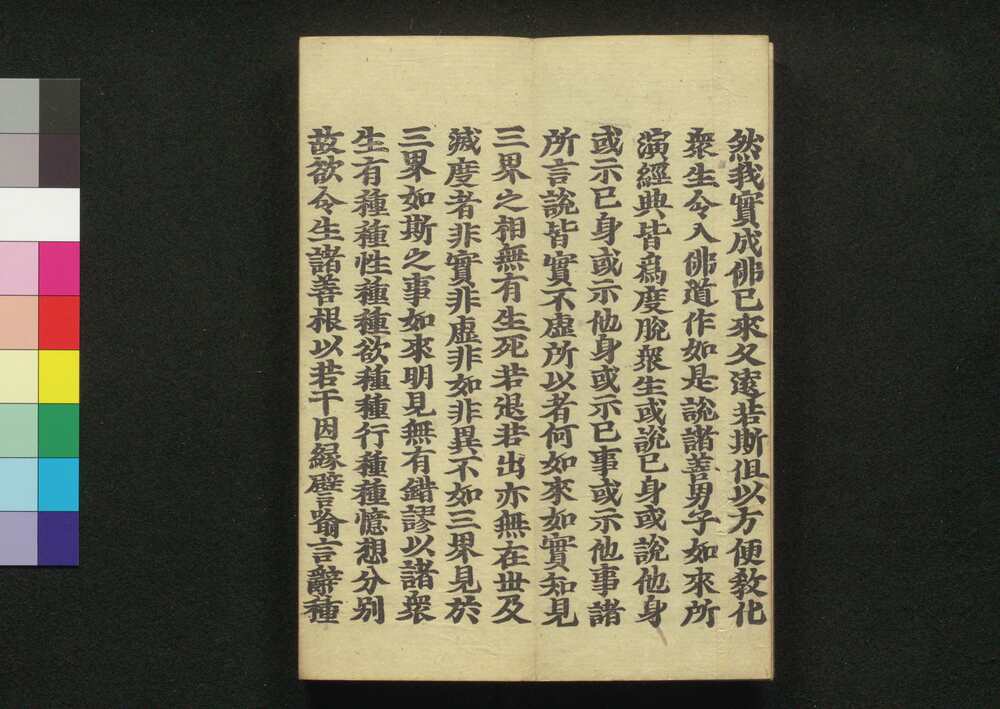 然我實成佛已來久遠若斯但以方便教化
衆生令入佛道作如是說諸善男子如來所
演經典皆爲度脫衆生或說己身或說他身
或示己身或示他身或示己事或示他事諸
所言說皆實不虛所以者何如來如實知見
三界之相無有生死若退若出亦無在世及
滅度者非實非虛非如非異不如三界見於
三界如斯之事如來明見無有錯謬以諸衆
生有種種性種種欲種種行種種憶想分別
故欲令生諸善根以若干因緣譬喻言辭種